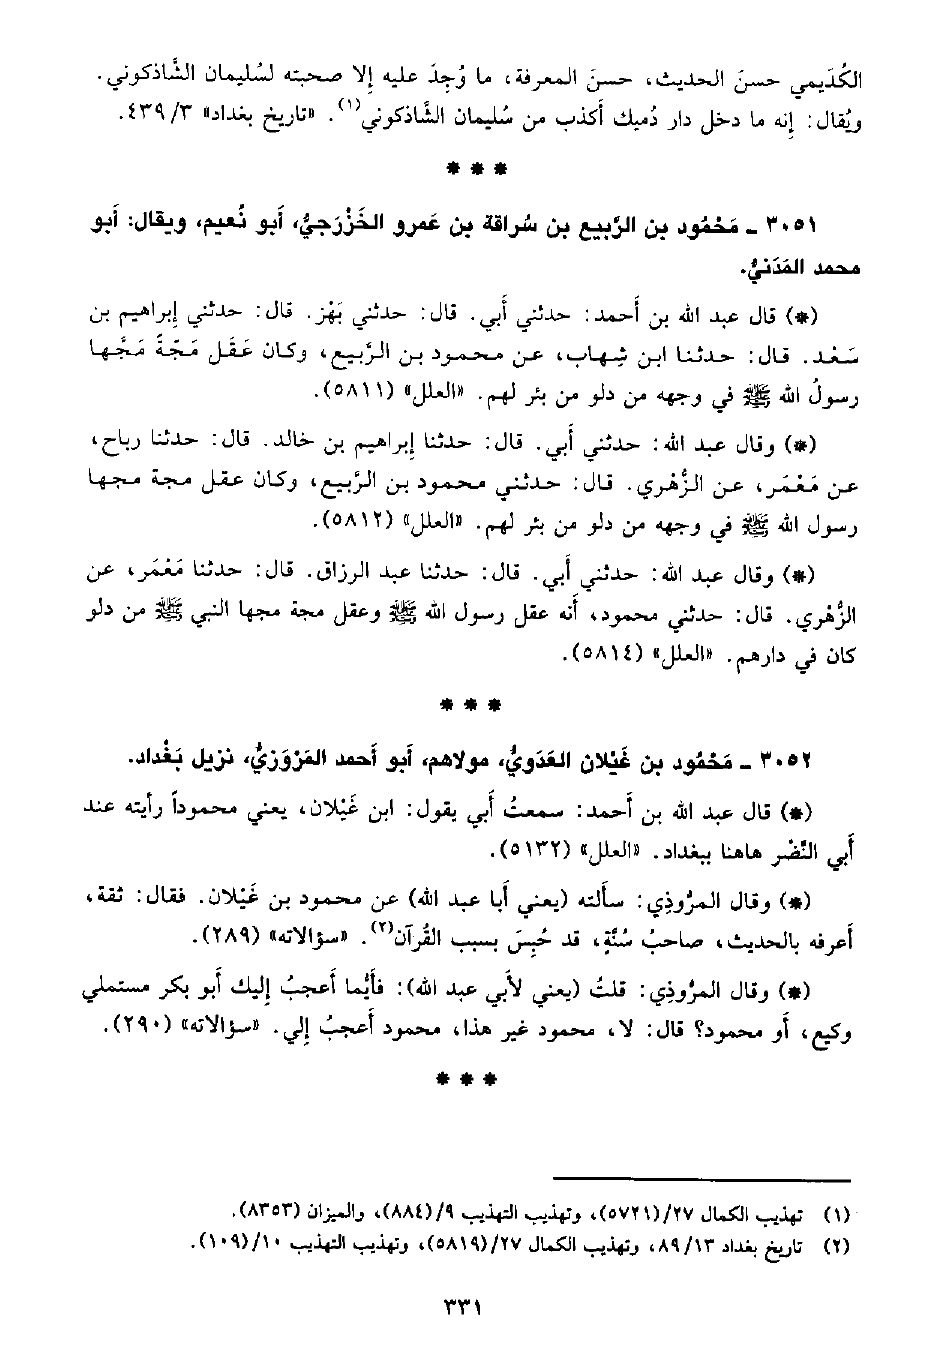 الكُدَيمي حسنَ الحديث، حسنَ المعرفة، ما وُجِدَ عليه إلا صحبته لسُليمان الشَّاذكوني.
ويُقال: إنه ما دخل دار دُميك أكذب من سُليمان الشَّاذكوني(١). «تاريخ بغداد» ٤٣٩/٣.
* * *
٣٠٥١ ـ مَحْمُود بن الرَّبيع بن سُراقة بن عَمرو الخَزْرَجيُّ، أَبو نُعيم، ويقال: أَبو
محمد المَدَنيُّ.
(*) قال عبد الله بن أَحمد: حدثني أَبي. قال: حدثني بَهْز. قال: حدثني إِبراهيم بن
سَعْد. قال: حدثنا ابن شِهاب، عن محمود بن الرَّبيع، وكان عَقَل مَجّةً مَجَّها
رسولُ الله ﷺ في وجهه من دلو من بئر لهم. «العلل» (٥٨١١).
(*) وقال عبد الله: حدثني أَبي. قال: حدثنا إِبراهيم بن خالد. قال: حدثنا رباح،
عن مَعْمَر، عن الزُّهْري. قال: حدثني محمود بن الرَّبيع، وكان عقل مجة مجها
رسول الله ﷺ في وجهه من دلو من بئر لهم. «العلل» (٥٨١٢).
(*) وقال عبد الله: حدثني أَبي. قال: حدثنا عبد الرزاق. قال: حدثنا مَعْمَر، عن
الزُّهْري. قال: حدثني محمود، أَنه عقل رسول الله ﷺ وعقل مجة مجها النبي ﷺ من دلو
كان في دارهم. «العلل» (٥٨١٤).
* * *
٣٠٥٢ ـ مَحْمُود بن غَيْلان العَدَويُّ، مولاهم، أَبو أَحمد المَرْوَزيُّ، نزيل بَغْداد.
(*) قال عبد الله بن أَحمد: سمعتُ أَبي يقول: ابن غَيْلان، يعني محموداً رأيته عند
أَبي النَّضْر هاهنا ببغداد. «العلل» (٥١٣٢).
(*) وقال المرُّوذِي: سألته (يعني أَبا عبد الله) عن محمود بن غَيْلان. فقال: ثقة،
أَعرفه بالحديث، صاحبُ سُنَّةٍ، قد حُبِسَ بسبب القُرآن(٢). «سؤالاته» (٢٨٩).
(*) وقال المرُّوذي: قلتُ (يعني لأَبي عبد الله): فأَيُّما أَعجبُ إِليك أَبو بكر مستملي
وكيع، أَو محمود؟ قال: لا، محمود غير هذا، محمود أَعجبُ إِلي. «سؤالاته» (٢٩٠).
* * *
(١) تهذيب الكمال ٢٧/(٥٧٢١)، وتهذيب التهذيب ٩/(٨٨٤)، والميزان (٨٣٥٣).
(٢) تاريخ بغداد ٨٩/١٣، وتهذيب الكمال ٢٧/(٥٨١٩)، وتهذيب التهذيب ١٠/(١٠٩).
٣٣١